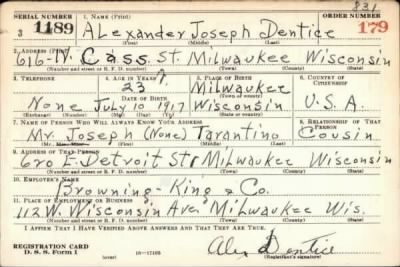 831
SERIAL NUMBER 1. NAME (Print) ORDER NUMBER
3 1189 ALexander Joseph Dentice 179
(First) (Middle) (Last)
2. ADDRESS (Print)
616-N. Cass St. Milwaukee Wisconsin
(Number and street or R. F. D. number) (Town) (County) (State)
3. TELEPHONE 4. AGE IN YEARS 5. PLACE OF BIRTH 6. COUNTRY OF CITIZENSHIP
23 Milwaukee
DATE OF BIRTH (Town or county)
None July 10 1917 Wisconsin U.S.A.
(Exchange) (Number) (Mo.) (Day) (Yr.) (State or country)
7. NAME OF PERSON WHO WILL ALWAYS KNOW YOUR ADDRESS 8. RELATIONSHIP OF THAT PERSON
Mr. Joseph (None) Tarantino Cousin
(First) (Middle) (Last)
9. ADDRESS OF THAT PERSON
620 E Detroit Str Milwaukee Wisconsin
(Number and street or R. F. D. number) (Town) (County) (State)
10. EMPLOYER'S NAME
Browning-King & Co.
11. PLACE OF EMPLOYMENT OR BUSINESS
112 W Wisconsin Ave Milwaukee Wis.
(Number and street or R. F. D. number) (Town) (County) (State)
I AFFIRM THAT I HAVE VERIFIED ABOVE ANSWERS AND THAT THEY ARE TRUE.
REGISTRATION CARD
D. S. S. Form 1 (over) 16-17105 Alex Dentice
(Registrant's signature)